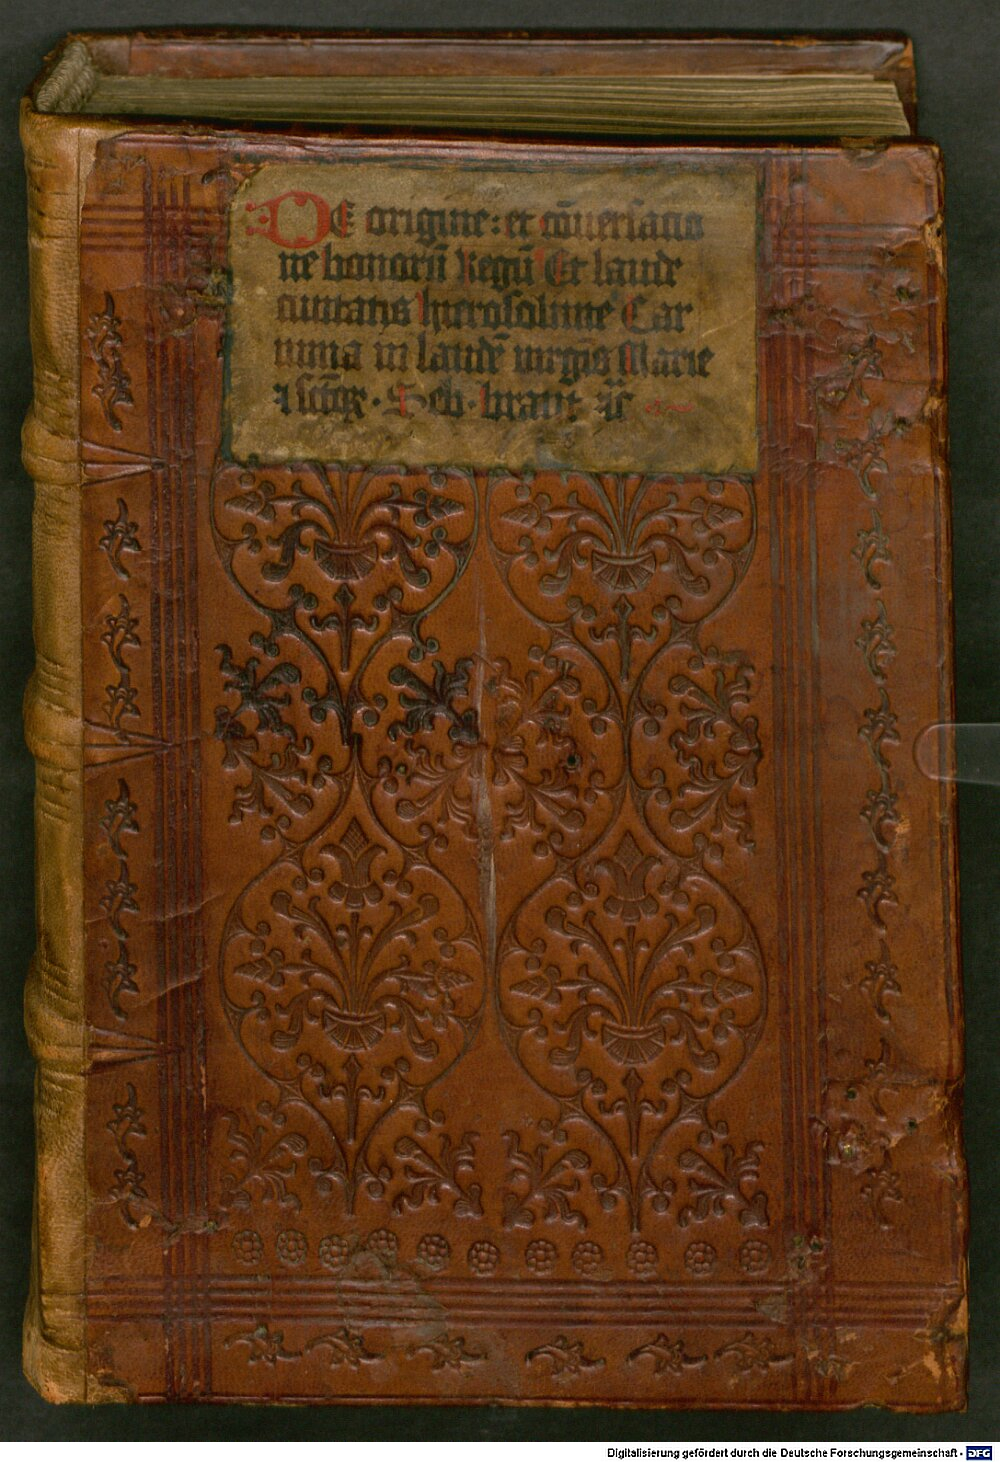 De origine: et cōuersatio
ne bonorū Regū Et laude
ciuitatis hierosolime Car
mina in laudē virgīs Marie
⁊ sctōꝝ · Seb · brant ⁊c̄
Digitalisierung gefördert durch die Deutsche Forschungsgemeinschaft - DFG